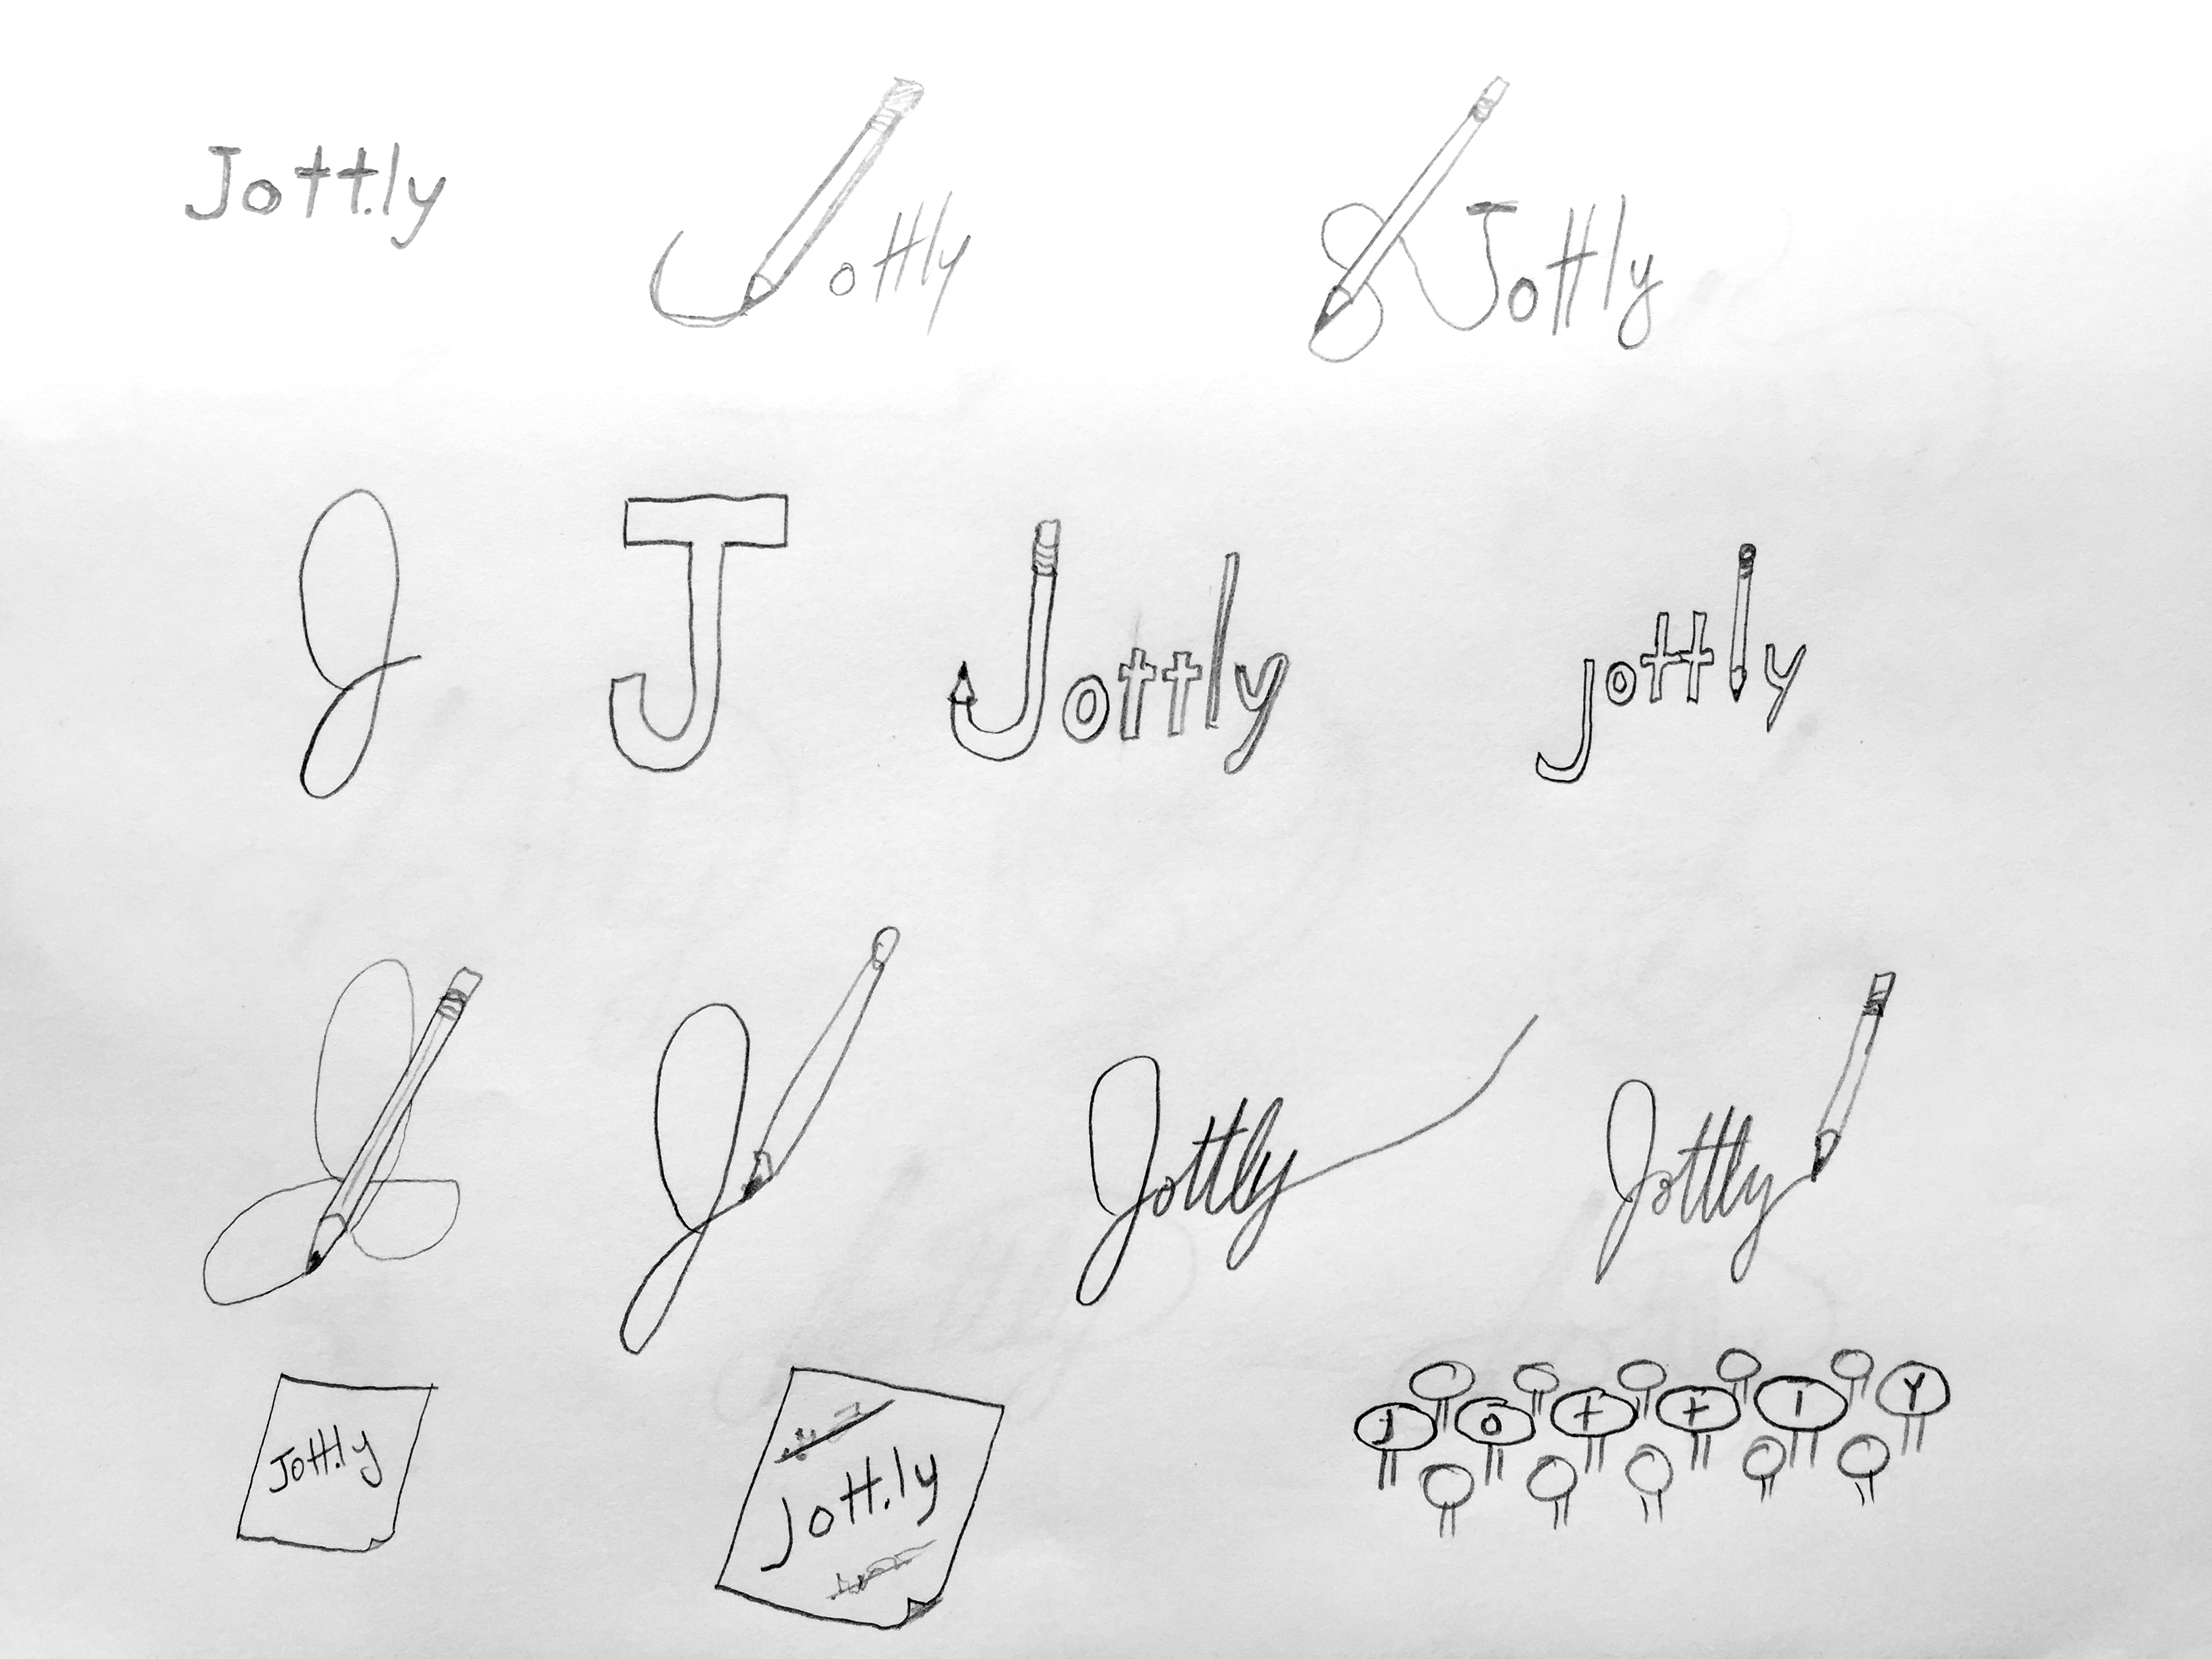 Jott.ly
Jottly
Jottly
J
J
Jottly
jottly
J
J
Jottly
Jottly
Jott.ly
Jott.ly
Jottly